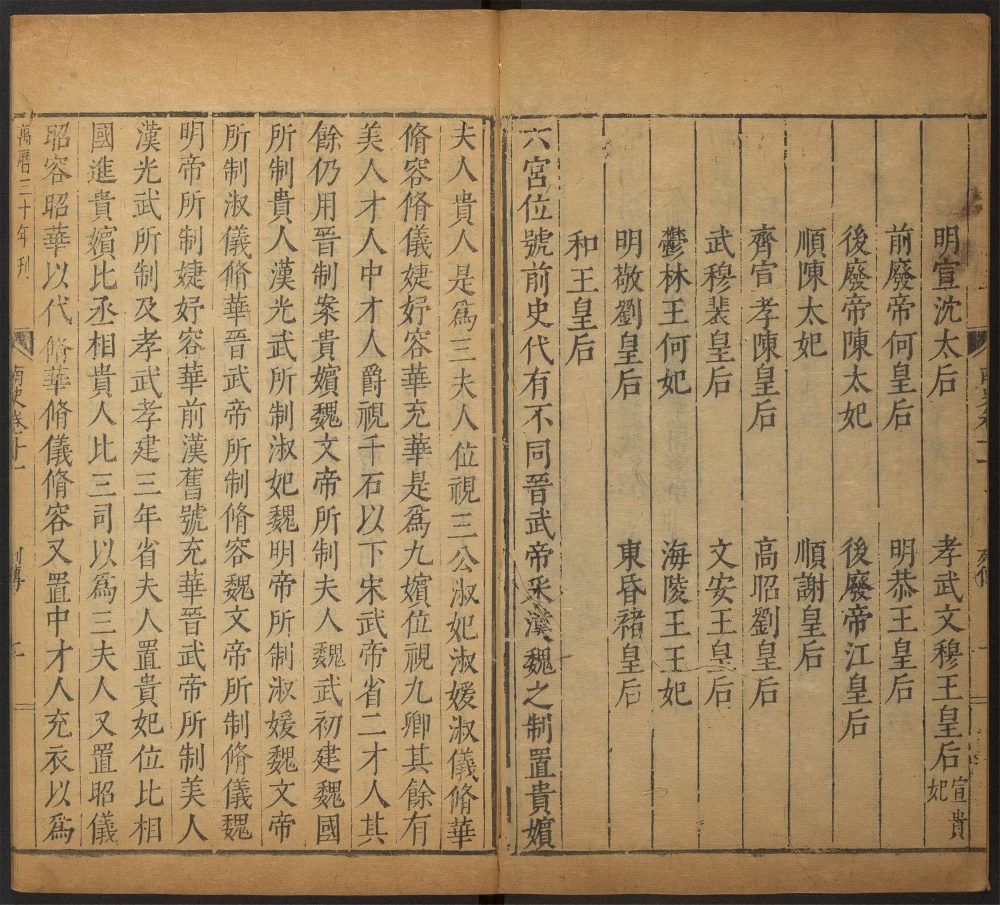 明宣沈太后 孝武文穆王皇后 宣貴妃
前廢帝何皇后 明恭王皇后
後廢帝陳太妃 後廢帝江皇后
順陳太妃 順謝皇后
齊宣孝陳皇后 高昭劉皇后
武穆裴皇后 文安王皇后
鬱林王何妃 海陵王王妃
明敬劉皇后 東昏褚皇后
和王皇后
六宮位號前史代有不同晉武帝采漢魏之制置貴嬪
夫人貴人是爲三夫人位視三公淑妃淑媛淑儀脩華
脩容脩儀婕妤容華充華是爲九嬪位視九卿其餘有
美人才人中才人爵視千石以下宋武帝省二才人其
餘仍用晉制案貴嬪魏文帝所制夫人魏武初建魏國
所制貴人漢光武所制淑妃魏明帝所制淑媛魏文帝
所制淑儀脩華晉武帝所制脩容魏文帝所制脩儀魏
明帝所制婕妤容華前漢舊號充華晉武帝所制美人
漢光武所制及孝武孝建三年省夫人置貴妃位比相
國進貴嬪比丞相貴人比三司以爲三夫人又置昭儀
昭容昭華以代脩華脩儀脩容又置中才人充衣以爲
萬曆三十年刊 南史卷十一 列傳